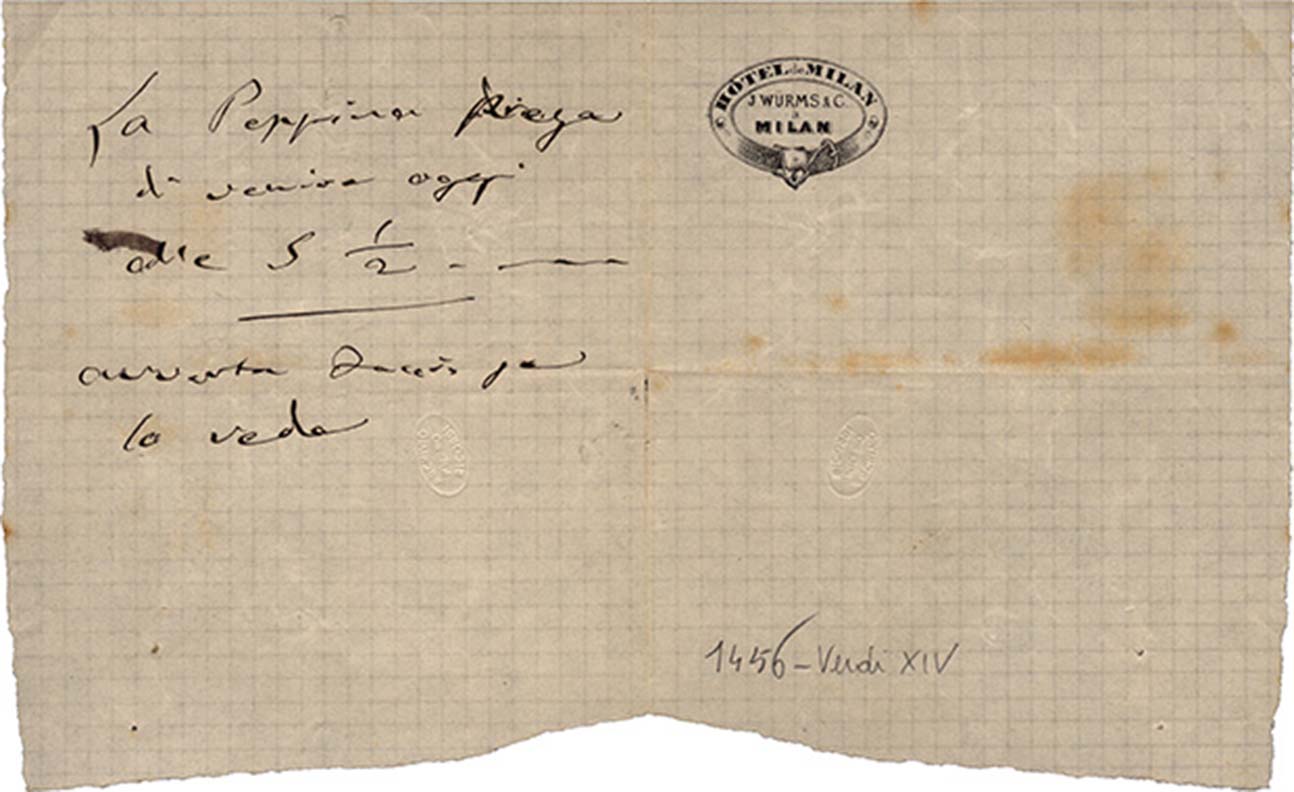 La Peppina prega
di venire oggi
alle 5 1/2 . —
avverta Ducis se
lo vede
HÔTEL de MILAN
J. WURMS & C.
à
MILAN
1456 – Verdi XIV